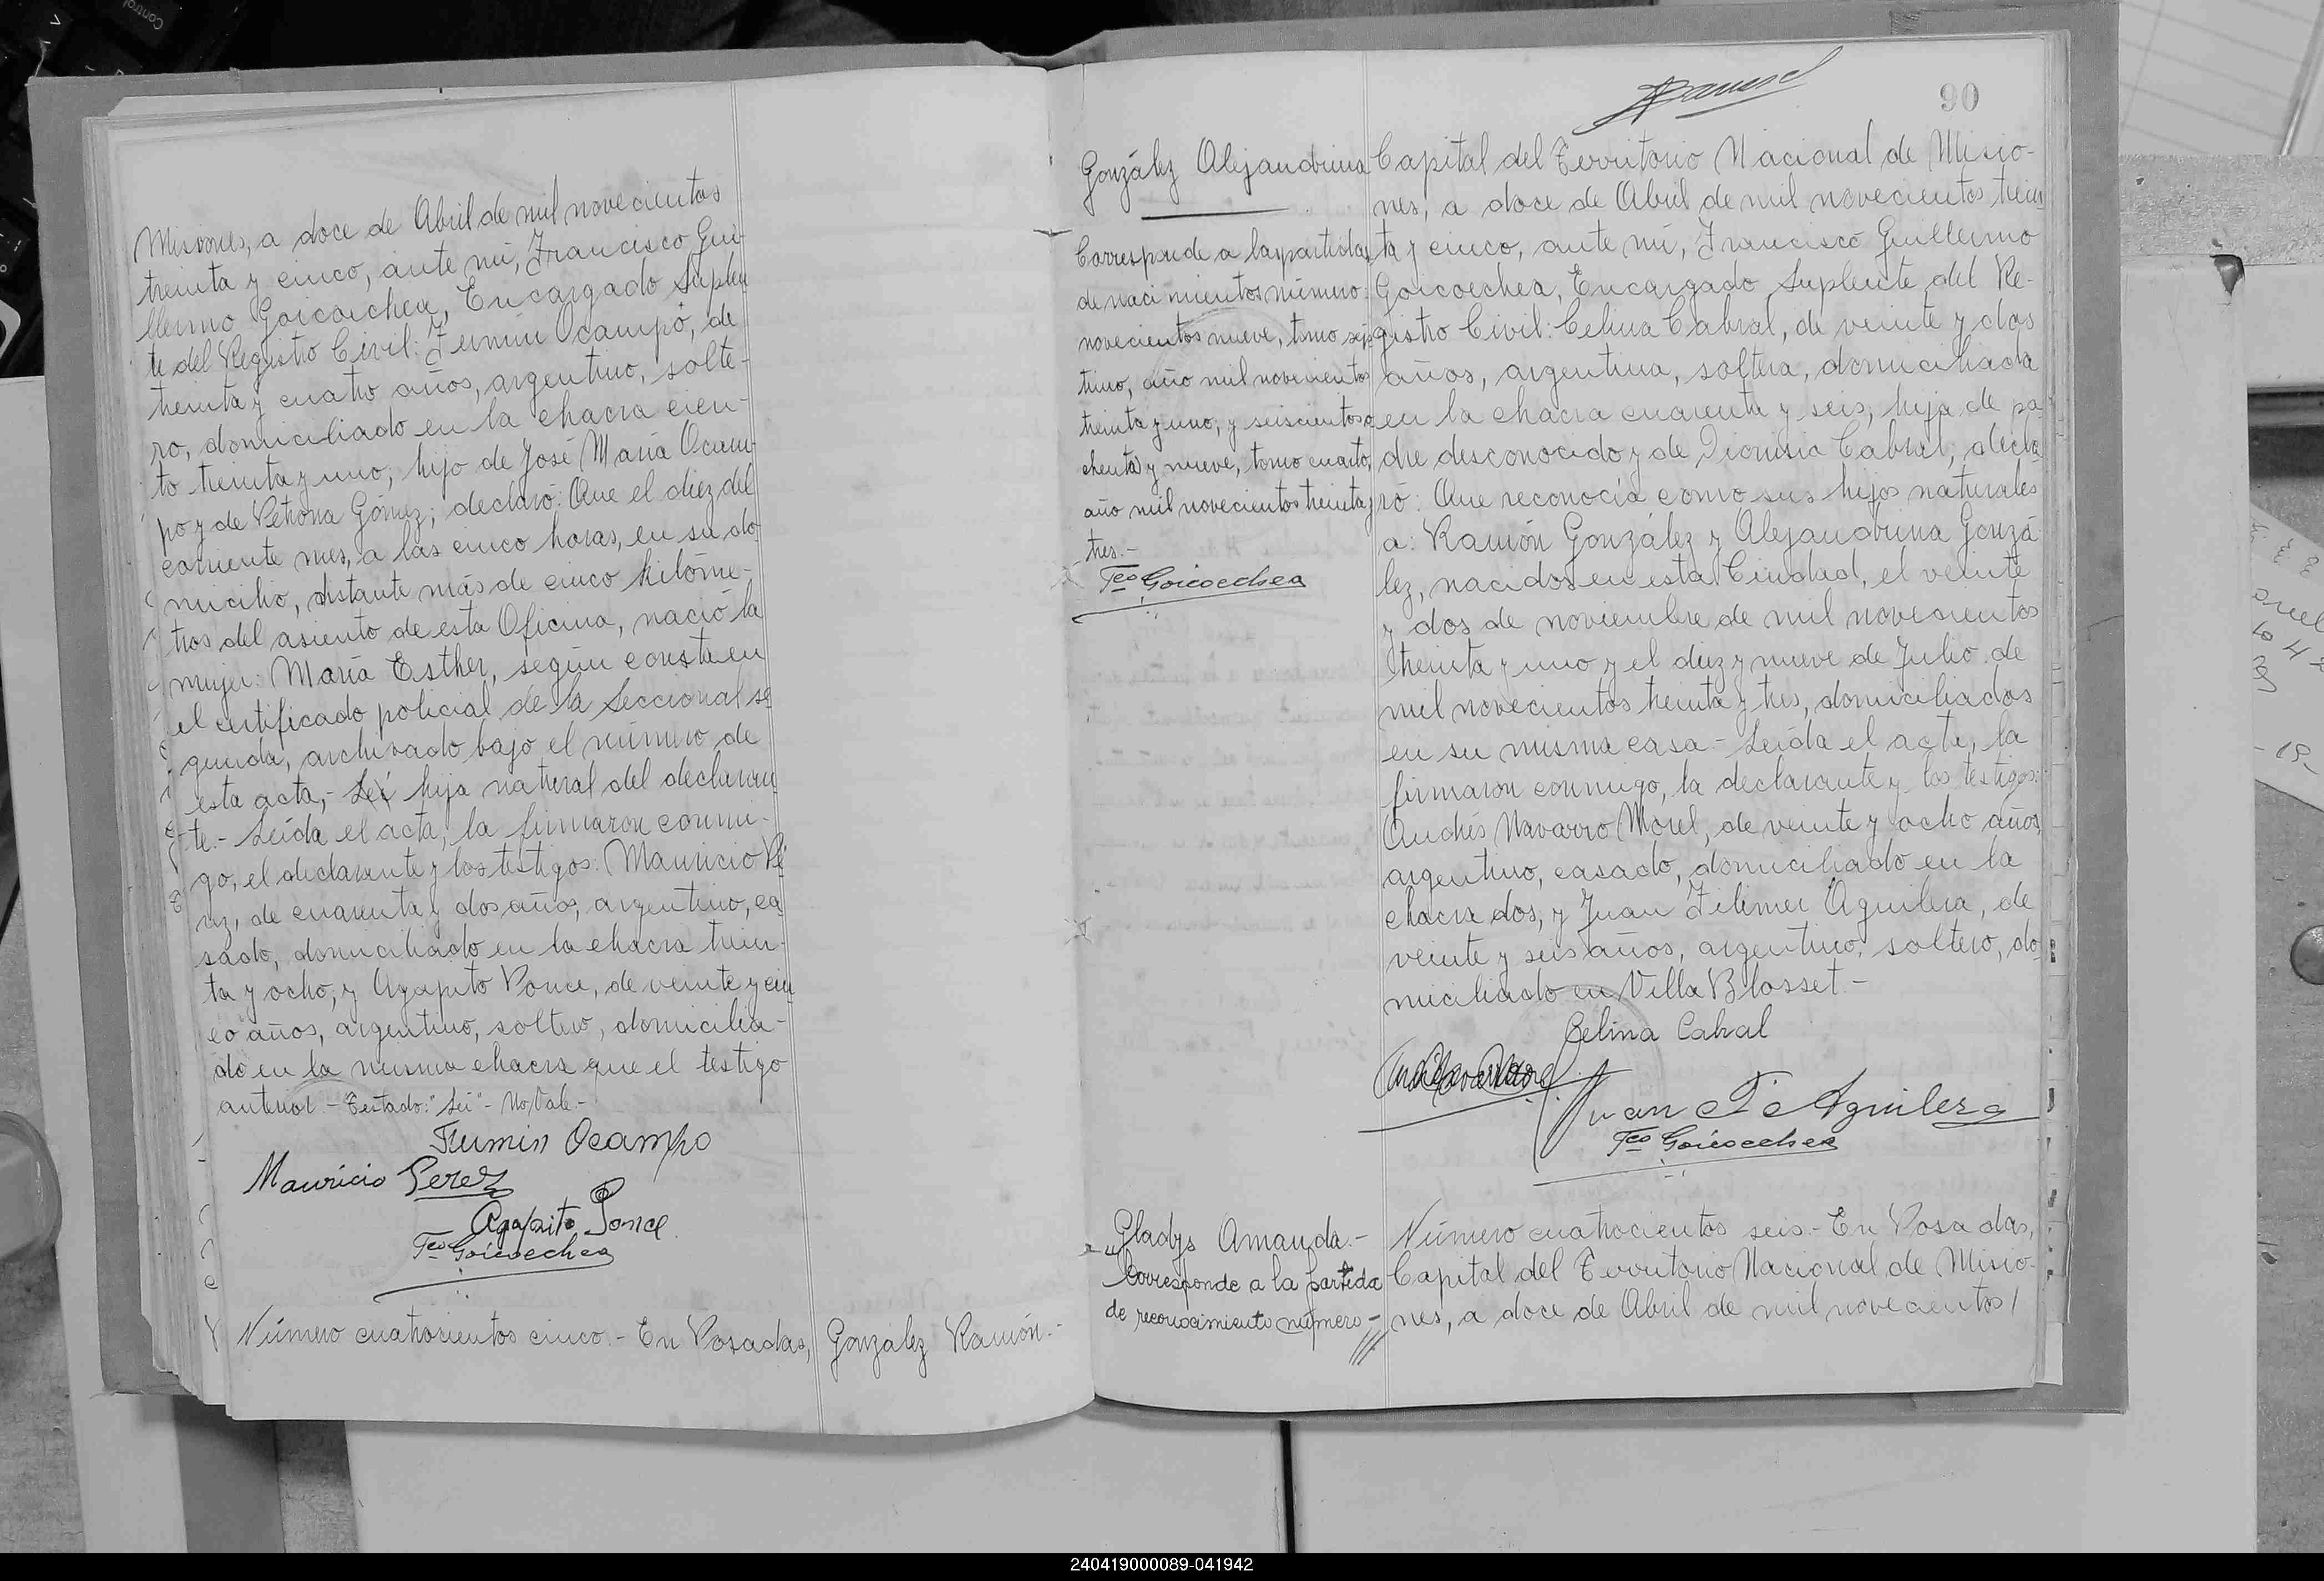 Misiones, a doce de Abril de mil novecientos
treinta y cinco, ante mí, Francisco Gui-
llermo Goicoechea, Encargado Suplen
te del Registro Civil: Fermín Ocampo, de
treinta y cuatro años, argentino, solte-
ro, domiciliado en la chacra cien-
to treinta y uno; hijo de José María Ocam
po y de Petrona Gómez; declaró: Que el diez del
corriente mes, a las cinco horas, en su do-
micilio, distante más de cinco kilóme-
tros del asiento de esta Oficina, nació la
mujer: María Esther, según consta en
el certificado policial de la Seccional se
gunda, archivado bajo el número de
esta acta,- Lei hija natural del declaran
te.- Leída el acta, la firmaron conmi-
go, el declarante y los testigos: Mauricio Pé
rez, de cuarenta y dos años, argentino, ca
sado, domiciliado en la chacra trein-
ta y ocho, y Agapito Ponce, de veinte y cin
co años, argentino, soltero, domicilia-
do en la misma chacra que el testigo
anterior.- Testado: "Lei"- No Vale.-
Fermin Ocampo
Mauricio Perez
Agapito Ponce
Fco Goicoechea
Número cuatrocientos cinco.- En Posadas,
González Ramón.-
90
González Alejandrina
Corresponde a las partidas
de nacimientos número:
novecientos nueve, tomo sép
timo, año mil novecientos
treinta y uno, y seiscientos o
chenta y nueve, tomo cuarto,
año mil novecientos treinta y
tres.-
Fco Goicoechea
Capital del Territorio Nacional de Misio-
nes, a doce de Abril de mil novecientos trein
ta y cinco, ante mí, Francisco Guillermo
Goicoechea, Encargado Suplente del Re-
gistro Civil: Celina Cabral, de veinte y dos
años, argentina, soltera, domiciliada
en la chacra cuarenta y seis, hija de pa
dre desconocido y de Dionisia Cabral; decla
ró: Que reconocía como sus hijos naturales
a: Ramón González y Alejandrina Gonzá
lez, nacidos en esta Ciudad, el veinte
y dos de noviembre de mil novecientos
treinta y uno y el diez y nueve de Julio de
mil novecientos treinta y tres, domiciliados
en su misma casa.- Leída el acta, la
firmaron conmigo, la declarante y los testigos:
Andrés Navarro Morel, de veinte y ocho años,
argentino, casado, domiciliado en la
chacra dos, y Juan Filimer Aguilera, de
veinte y seis años, argentino, soltero, do
miciliado en Villa Blosset.-
Celina Cabral
Juan F. Aguilera
Fco Goicoechea
Gladys Amanda.-
Corresponde a la partida
de reconocimiento número-
Número cuatrocientos seis.- En Posadas,
Capital del Territorio Nacional de Misio-
nes, a doce de Abril de mil novecientos
240419000089-041942